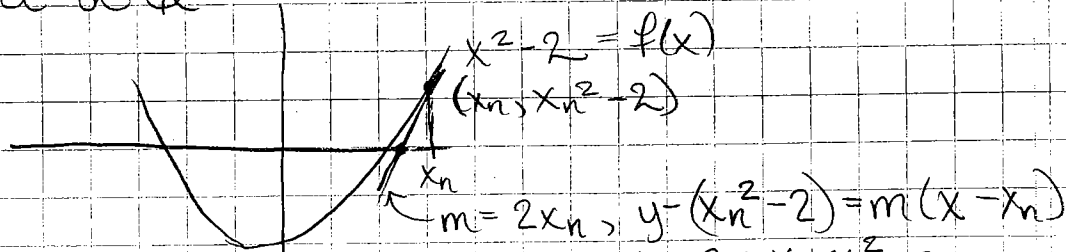 x² - 2 = f(x)
(xₙ, xₙ² - 2)
xₙ
m = 2xₙ, y - (xₙ² - 2) = m(x - xₙ)